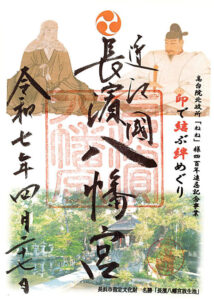 高台院北政所「ねね」様四百年遠忌記念事業
印で結ぶ絆めぐり
近江國
長濱八幡宮
令和七年四月二七日
長浜市指定文化財 名勝「長濱八幡宮放生池」